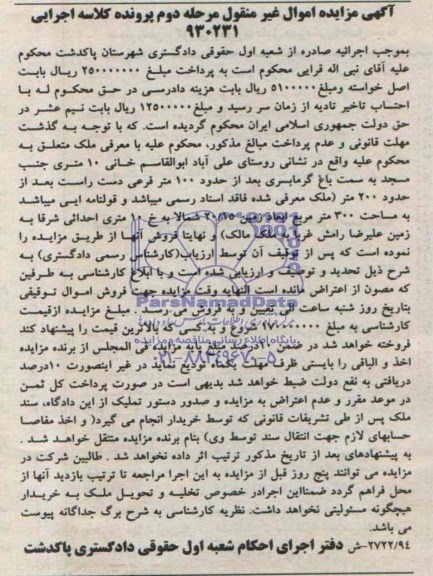 آگهی مزایده اموال غیر منقول مرحله دوم پرونده کلاسه اجرایی
۹۳۰۲۳۱
بموجب اجرائیه صادره از شعبه اول حقوقی دادگستری شهرستان پاکدشت محکوم
علیه آقای نبی اله قرایی محکوم است به پرداخت مبلغ ۲۵۰۰۰۰۰۰۰ ریال بابت
اصل خواسته ومبلغ ۵۱۰۰۰۰۰ ریال بابت هزینه دادرسی در حق محکوم له با
احتساب تاخیر تادیه از زمان سر رسید و مبلغ ۱۲۵۰۰۰۰۰ ریال بابت نیم عشر در
حق دولت جمهوری اسلامی ایران محکوم گردیده است. که با توجه به گذشت
مهلت قانونی و عدم پرداخت مبالغ مذکور، محکوم علیه با معرفی ملک متعلق به
محکوم علیه واقع در نشانی روستای علی آباد ابوالقاسم خانی ۱۰ متری جنب
مسجد به سمت باغ گرمابری بعد از حدود ۱۰۰ متر فرعی دست راست بعد از
حدود ۲۰۰ متر (ملک معرفی شده فاقد اسناد رسمی میباشد و قولنامه ایی میباشد
به مساحت ۳۰۰ متر مربع ابعاد زمین ۲۰/۱۵ شمالا به خ ۱۰ متری احداثی شرقا به
زمین علیرضا رامش غربا به ملک مالک) و نهایتا فروش آنها از طریق مزایده را
نموده است که پس از توقیف آن توسط ارزیاب(کارشناس رسمی دادگستری) به
شرح ذیل تحدید و توصیف و ارزیابی شده است و با ابلاغ کارشناسی به طرفین
که مصون از اعتراض مانده است النهایه وقت مزایده جهت فروش اموال توقیفی
بتاریخ روز شنبه ساعت الی تعیین و به فروش می رسد. مبلغ مزایده ازقیمت
کارشناسی به مبلغ شروع و به کسی که بالاترین قیمت را پیشنهاد کند
فروخته خواهد شد در ضمن ۱۰درصد مبلغ پایه مزایده فی المجلس از برنده مزایده
اخذ و الباقی را بایستی ظرف مهلت یکماه تودیع نماید در غیر اینصورت ۱۰درصد
دریافتی به نفع دولت ضبط خواهد شد بدیهی است در صورت پرداخت کل ثمن
در موعد مقرر و عدم اعتراض به مزایده و صدور دستور تملیک از این دادگاه، سند
ملک پس از طی تشریفات قانونی که توسط خریدار انجام می گیرد( و اخذ مفاصا
حسابهای لازم جهت انتقال سند توسط وی) بنام برنده مزایده منتقل خواهد شد.
به پیشنهادهای بعد از تاریخ مذکور ترتیب اثر داده نخواهد شد. طالبین شرکت در
مزایده می توانند پنج روز قبل از مزایده به این اجرا مراجعه تا ترتیب بازدید آنها از
محل فراهم گردد ضمنااین اجرادر خصوص تخلیه و تحویل ملک به خریدار
هیچگونه مسئولیتی نخواهد داشت. نظریه کارشناسی به شرح برگ جداگانه پیوست
می باشد.
۲۷۲۲/۹۴-ش دفتر اجرای احکام شعبه اول حقوقی دادگستری پاکدشت
ParsNamadData
پایگاه اطلاع رسانی مناقصه و مزایده
۰۲۱-۸۸۳۴۹۶۷۰-۵